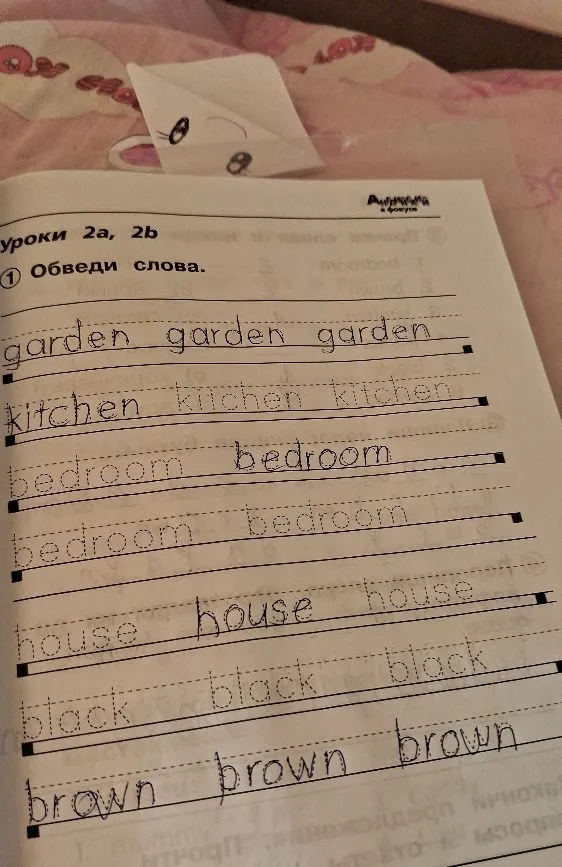 Английский
в фокусе
уроки 2a, 2b
1 Обведи слова.
garden garden garden
kitchen kitchen kitchen
bedroom bedroom
bedroom bedroom
house house house
black black black
brown brown brown